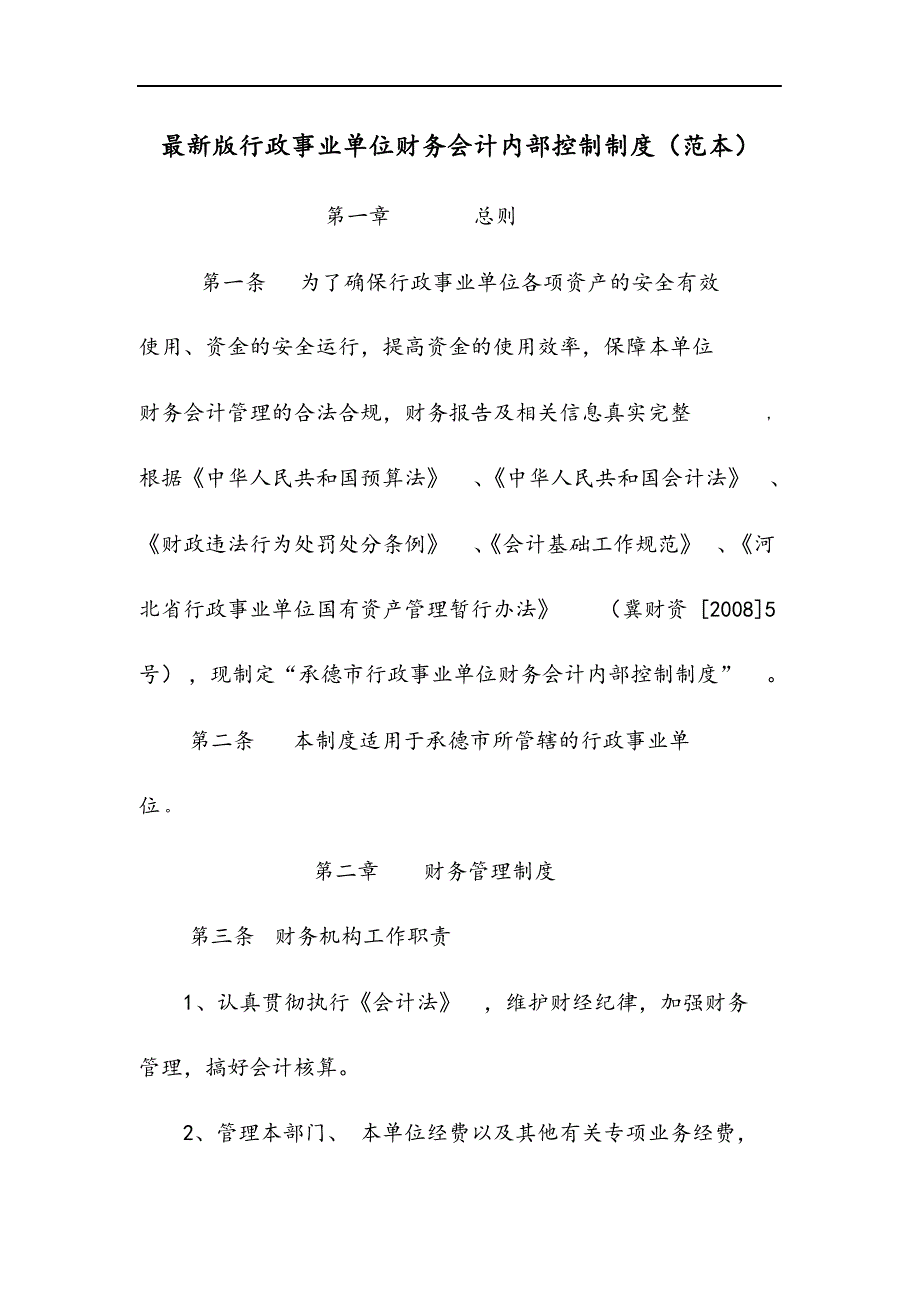 最新版行政事业单位财务会计内部控制制度（范本）
第一章 总则
第一条 为了确保行政事业单位各项资产的安全有效
使用、资金的安全运行，提高资金的使用效率，保障本单位
财务会计管理的合法合规，财务报告及相关信息真实完整 ，
根据《中华人民共和国预算法》 、《中华人民共和国会计法》 、
《财政违法行为处罚处分条例》 、《会计基础工作规范》 、《河
北省行政事业单位国有资产管理暂行办法》 （冀财资 [2008]5
号），现制定“承德市行政事业单位财务会计内部控制制度” 。
第二条 本制度适用于承德市所管辖的行政事业单
位。
第二章 财务管理制度
第三条 财务机构工作职责
1、认真贯彻执行《会计法》 ，维护财经纪律，加强财务
管理，搞好会计核算。
2、管理本部门、 本单位经费以及其他有关专项业务经费，